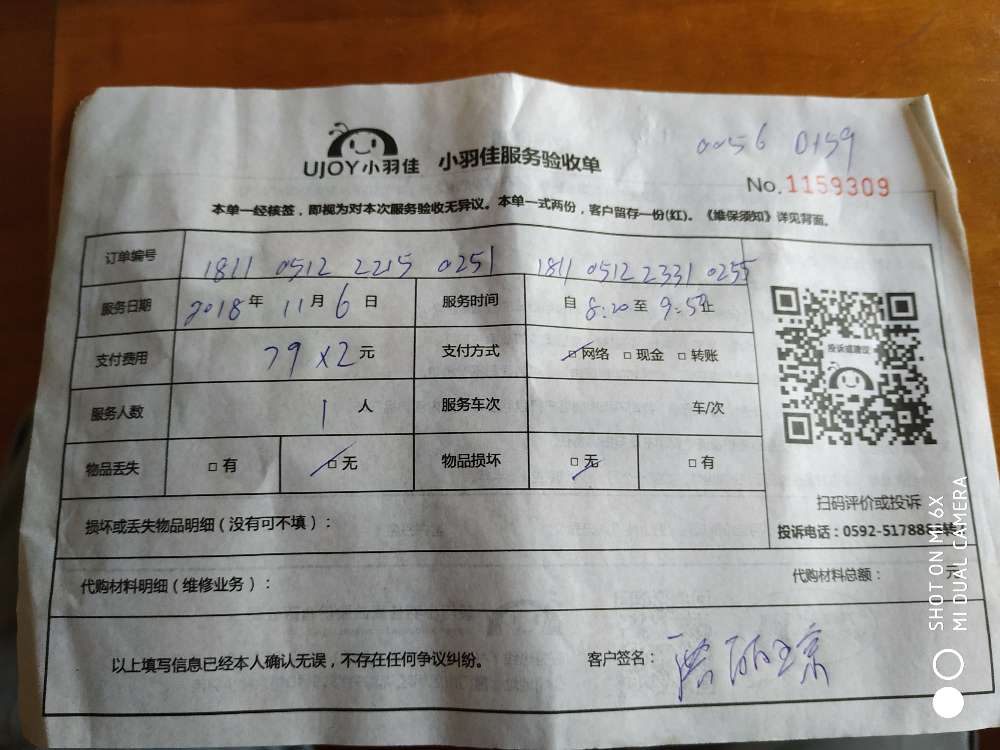 0056 0159
UJOY小羽佳 小羽佳服务验收单
No.1159309
本单一经核签，即视为对本次服务验收无异议。本单一式两份，客户留存一份(红)。《维保须知》详见背面。
订单编号 1811 0512 2215 0251 1811 0512 2331 0255
服务日期 2018年 11月 6日 服务时间 自 8:20 至 9:50 止
支付费用 79×2元 支付方式 □网络 □现金 □转账
投诉或建议
服务人数 1人 服务车次 车/次
物品丢失 □有 □无 物品损坏 □无 □有
扫码评价或投诉
损坏或丢失物品明细（没有可不填）：
投诉电话：0592-517888
代购材料明细（维修业务）： 代购材料总额： 元
以上填写信息已经本人确认无误，不存在任何争议纠纷。 客户签名：
SHOT ON MI 6X
MI DUAL CAMERA